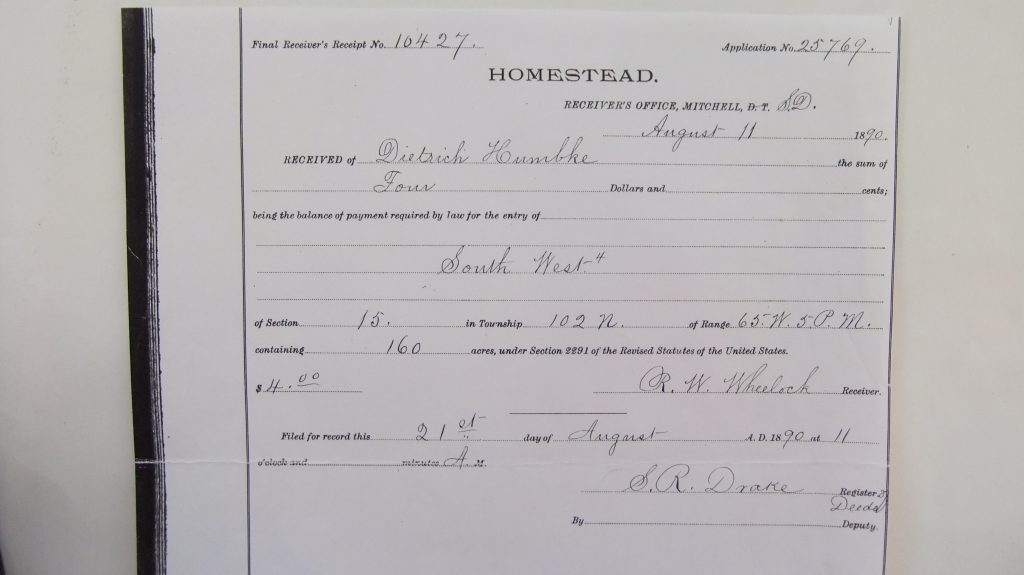 Final Receiver's Receipt No. 10427. Application No. 25769.
HOMESTEAD.
RECEIVER'S OFFICE, MITCHELL, D. T. S.D.
August 11 1890.
RECEIVED of Dietrich Humbke the sum of
Four Dollars and cents;
being the balance of payment required by law for the entry of
South West 4
of Section 15. in Township 102 N. of Range 65 W. 5 P. M.
containing 160 acres, under Section 2291 of the Revised Statutes of the United States.
$ 4.00 R. W. Wheelock Receiver.
Filed for record this 21st day of August A. D. 1890 at 11
o'clock and minutes A. M.
S. R. Drake Register of
Deeds
By Deputy.